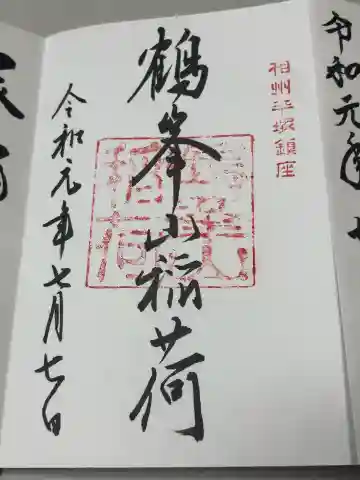 令和元年七
相州平塚鎮座
鶴峯山稲荷
令和元年七月七日